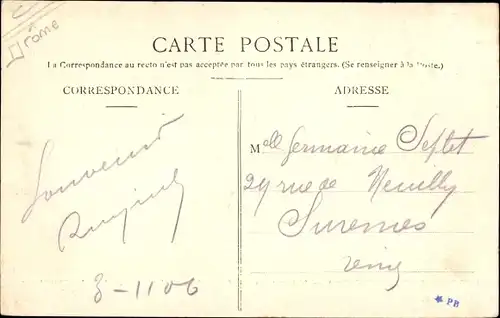 Drôme
CARTE POSTALE
La Correspondance au recto n'est pas acceptée par tous les pays étrangers. (Se renseigner à la Poste.)
CORRESPONDANCE
ADRESSE
Souvenir
8-1106
Melle Germaine Seflet
29 rue de Neuilly
Suresnes
* PB